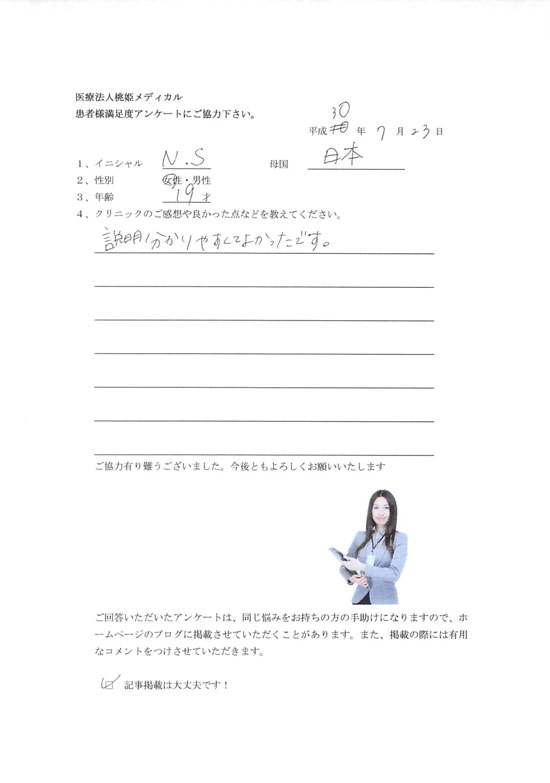 医療法人桃姫メディカル
患者様満足度アンケートにご協力下さい。
30
平成 年 7 月 23 日
1、イニシャル N.S 母国 日本
2、性別 女性・男性
3、年齢 19才
4、クリニックのご感想や良かった点などを教えてください。
説明分かりやすくてよかったです。
ご協力有り難うございました。今後ともよろしくお願いいたします
ご回答いただいたアンケートは、同じ悩みをお持ちの方の手助けになりますので、ホ
ームページのブログに掲載させていただくことがあります。また、掲載の際には有用
なコメントをつけさせていただきます。
記事掲載は大丈夫です！